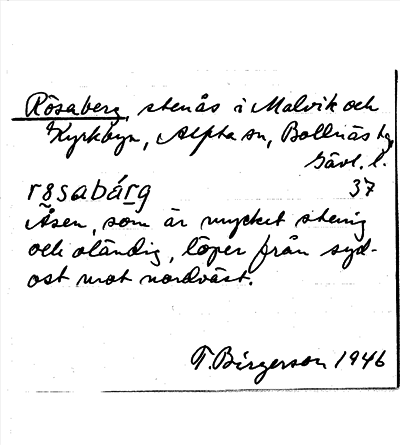 Rösaberg, stenås i Malvik och
Kyrkbyn, Alfta sn, Bollnäs tg,
Gävl. l.
r8sabárg 37
Åsen, som är mycket stenig
och oländig, löper från syd-
ost mot nordväst.
T. Birgerson 1946